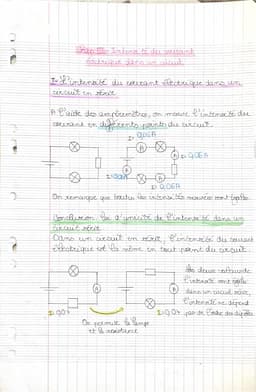 Chap III: Intensité du courant
électrique dans un circuit.
I- L'intensité du courant électrique dans un
circuit en série
A l'aide des ampèremètres, on mesure l'intensité du
courant en différents points du circuit.
0,06A
0,06A
0,06A
On remarque que toutes les intensités mesurées sont égales.
Conclusion: Loi d'unicité de l'intensité dans un
circuit série
Dans un circuit en série, l'intensité du courant
électrique est la même en tout point du circuit.
Les deux
l'intensité est
dans un circuit série,
l'intensité ne dépend
pas de l'ordre des dipôles
On permute la lampe
et la résistance